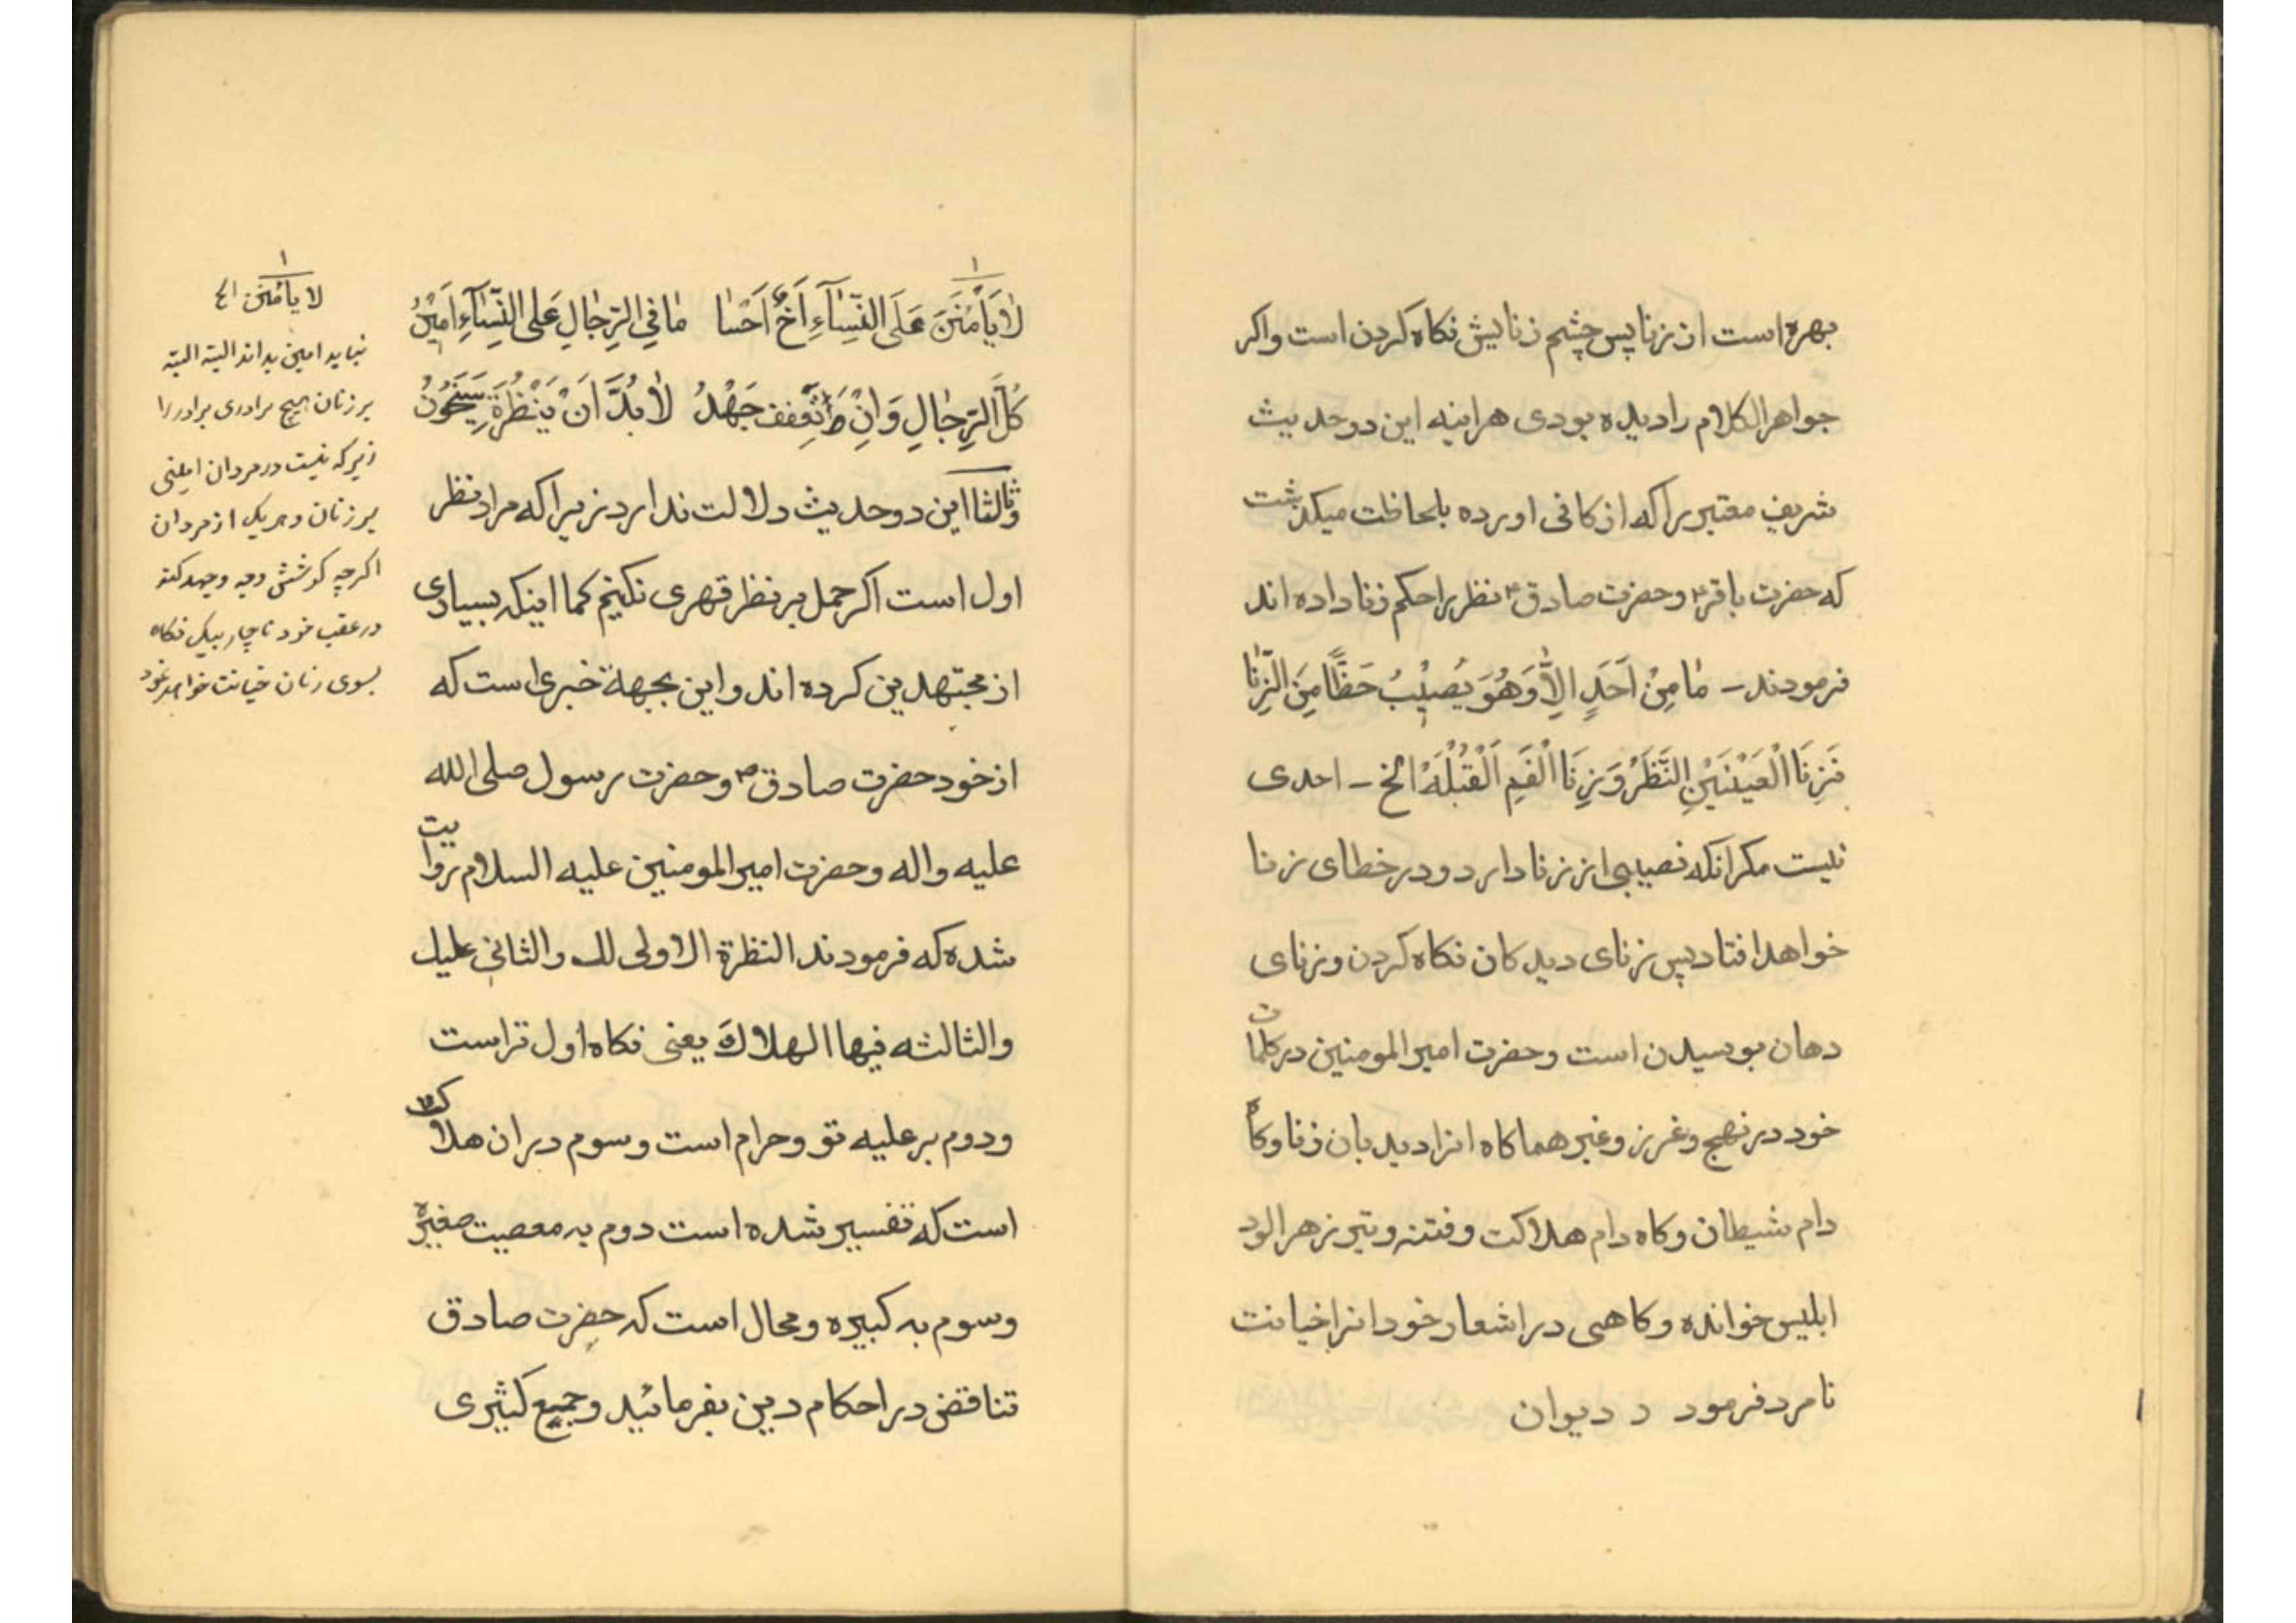 بهره است از زنا پس چشم زنایش نکاه کردن است واکر
جواهر الکلام را دیده بودی هراینه این دو حدیث
شریف معتبر را که از کافی اورده بلحاظت میکذشت
که حضرت باقر۴ وحضرت صادق۴ نظر را حکم زنا داده اند
فرمودند – مٰا مِنْ اَحَدٍ اِلاّٰ وَهُوَ یُصیْبُ حَظًّا مِنَ الزِّنٰا
فَزِنَا الْعَیْنَیْنِ النَّظَرُ وَزِنَا الْفَمِ اَلْقُبْلَهُ الخ – احدی
نیست مکر انکه نصیبی از زنا دارد ودر خطای زنا
خواهد افتاد پس زنای دیدکان نکاه کردن وزنای
دهان بوسیدن است وحضرت امیر المومنین در کلمات
خود در نهج وغرر وغیرهما کاه انرا دید بان زنا وکاه
دام شیطان وکاه دام هلاکت وفتنه وتیر زهر الود
ابلیس خوانده وکاهی در اشعار خود انرا خیانت
نامرد فرمود د دیوان
لاٰ یَأمَنَنَّ عَلَی النِّسٰآءِ اَخٌ اَخٰا مٰا فِی الرِّجٰالِ عَلَی النِّسٰآءِ اَمیْنُ
کُلُّ الرِّجٰالِ وَاِنْ تَعَفَّفَ جَهْدُ لاٰ بُدَّ اَنْ یَنْظُرَةٍ سَیَخُوْنُ
وثالثا این دو حدیث دلالت ندارد زیرا که مراد نظر
اول است اکر حمل بر نظر قهری نکنیم کما اینکه بسیاری
از مجتهدین کرده اند واین بجهة خبری است که
از خود حضرت صادق۴ وحضرت رسول صلی الله
علیه واله وحضرت امیر المومنین علیه السلام روایت
شده که فرمودند النظرة الاولی لك والثانی علیك
والثالثه فیها الهلاكَ یعنی نکاه اول تراست
ودوم بر علیه تو وحرام است وسوم در ان هلاکت
است که تفسیر شده است دوم به معصیت صغیره
وسوم به کبیره ومحال است که حضرت صادق
تناقض در احکام دین بفرمائید وجمیع کثیری
۱
لا یأمنن الخ
نباید امین بداند البته البته
بر زنان هیچ برادری برادر را
زیرکه نیست در مردان امینی
بر زنان وهریک از مردان
اکرچه کوشش وجهد کند
در عقب خود ناچار بیک نکاه
بسوی زنان خیانت خواهد نمود